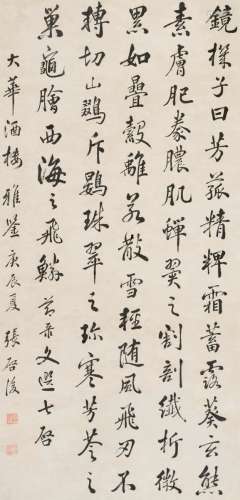 鏡機子曰芳菰精粺霜蓄露葵玄熊
素膚肥豢膿肌蟬翼之割剖纖析微
累如疊縠離若散雪輕隨風飛刃不
轉切山鵽斥鷃珠翠之珍寒芳苓之
巢龜膾西海之飛鱗節录文選七啓
大華酒樓雅鑒庚辰夏張啓後